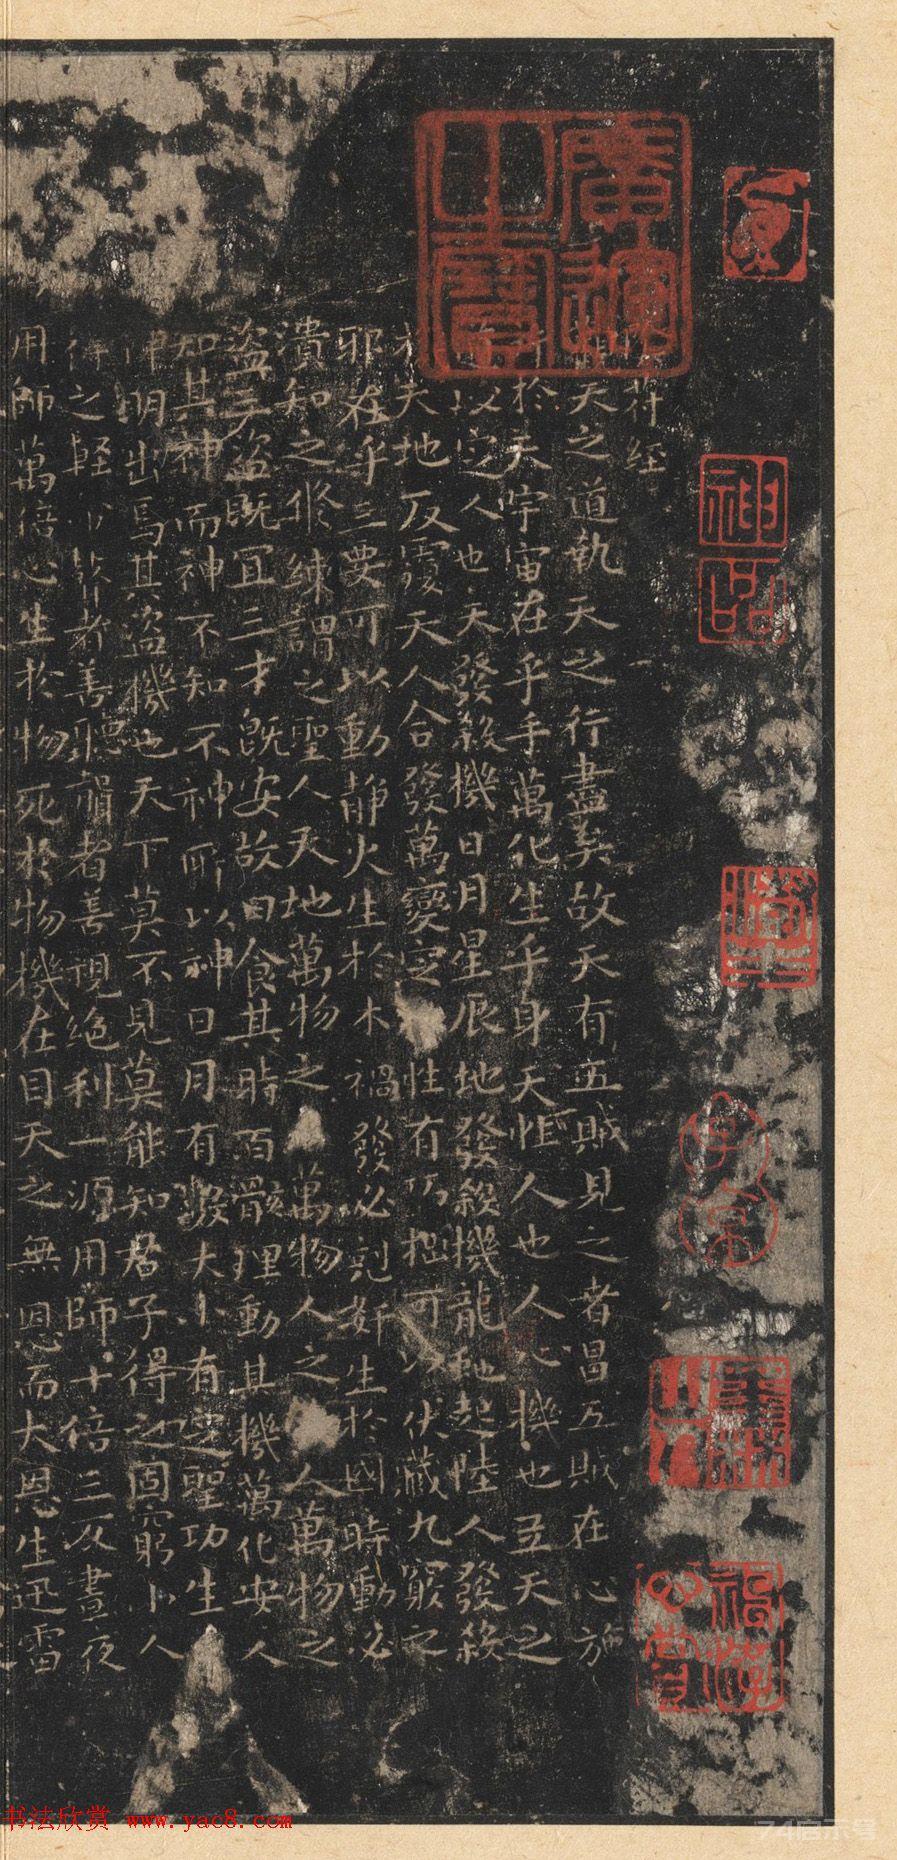 神品
子京
廣運之寶
墨林山人
符經
天之道執天之行盡矣故天有五賊見之者昌五賊在心施
於天宇宙在乎手萬化生乎身天性人也人心機也立天之
以定人也天發殺機日月星辰地發殺機龍虵起陸人發殺
機天地反覆天人合發萬變定性有巧拙可以伏藏九竅之
邪在乎三要可以動靜火生於木禍發必剋姧生於國時動必
潰知之修練謂之聖人天地萬物之萬物人之人萬物之
盜三盜既宜三才既安故曰食其時百骸理動其機萬化安人
知其神而神不知不神所以神日月有數大小有定聖功生
神明出焉其盜機也天下莫不見莫能知君子得之固窮小人
得之輕者善聽聾者善視絕利一源用師十倍三反晝夜
用師萬倍心生於物死於物機在目天之無恩而大恩生迅雷
书法欣赏 www.yac8.com